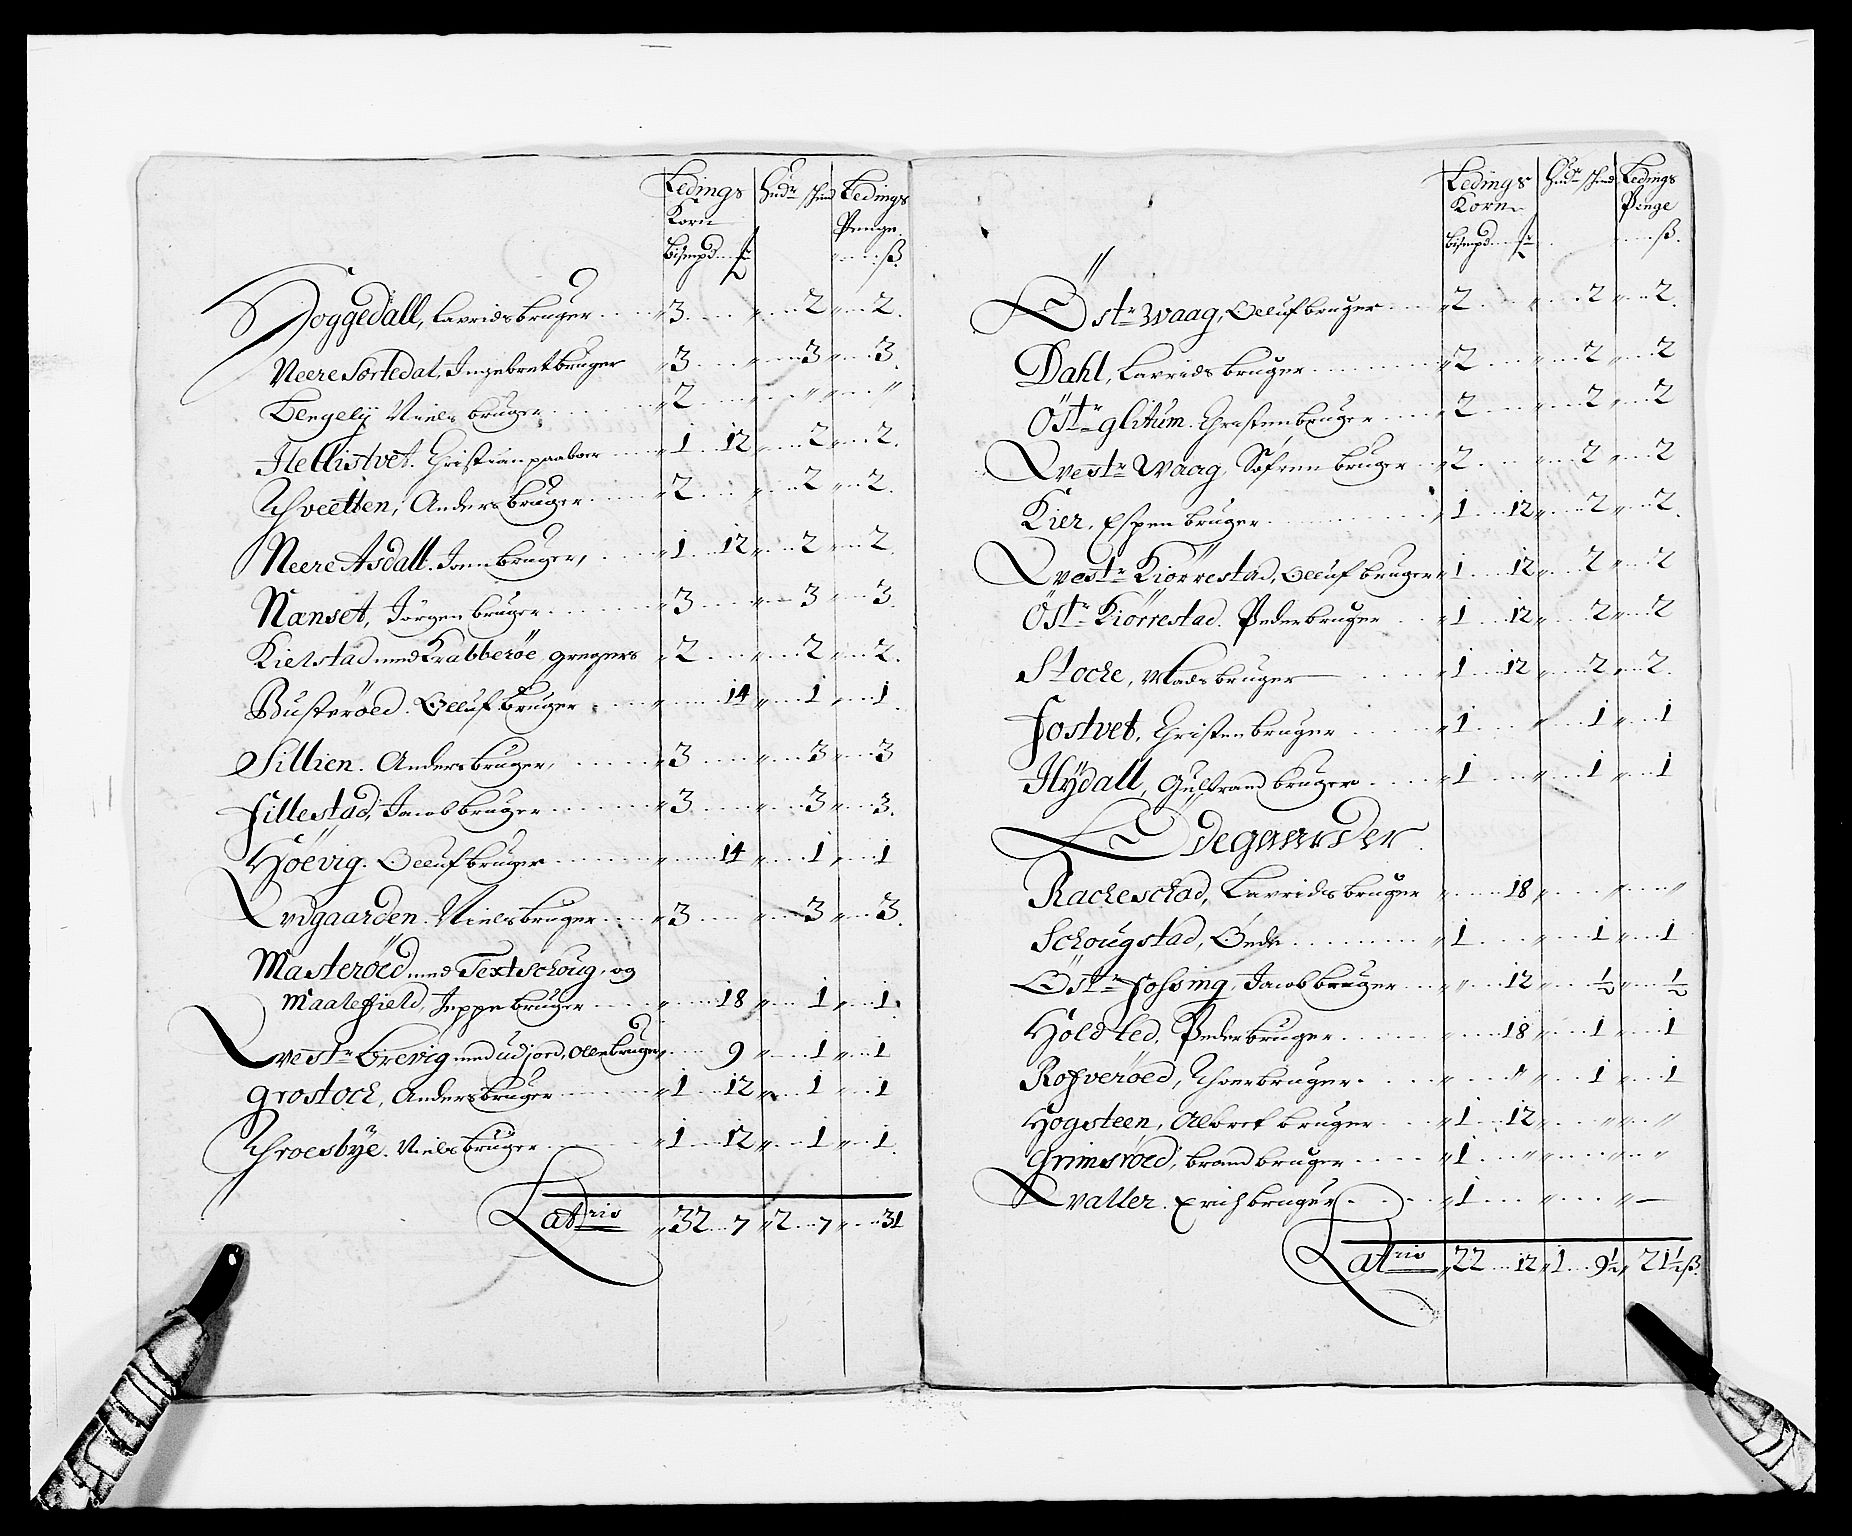 Ledings Korn Hudr schind Ledings Penge
Bismpd ß
Joggedall, Lavrids bruger 3 2 2
Neere Sortedal, Ingebret bruger 3 3 3
Lengelij Niels bruger 2 " "
Hellistvet. Christian paaboer 1 12 2 2
Thveetten, Anders bruger 2 2 2
Neere Asdall. Jonn bruger, 1 12 2 2
Nanset, Jörgen bruger 3 3 3
Kielstad med Krabberöe gregers 2 2 2
Busteröed. Olluf bruger 14 1 1
Sillien. Anders bruger, 3 3 3
Fillestad, Jacob bruger 3 3 3
Höevig. Olluf bruger 14 1 1
Lvdgaarden. Niels bruger 3 3 3
Masteröed med Textschoug, og
Maalefield, Jeppe bruger 18 1 1
Vestr Brevig med udjord, Olle bruger 9 1 1
Grostoch, Anders bruger 1 12 1 1
Throesbÿe. Niels bruger 1 12 1 1
Latris 32 7 2 7 31
Ledings Korn Hudr schind Ledings Penge
Bismpd ß
Östr Waag, Olluf bruger 2 2 2
Dahl, Lavrids bruger 2 2 2
Östr glitum. Christen bruger 2 2 2
Vestr Waag, Söfren bruger 2 2 2
Kier, Espen bruger 1 12 2 2
Vestr Kiörrestad, Olluf bruger 1 12 2 2
Östr Kiörrestad. Peder bruger 1 12 2 2
Stocke, Mads bruger 1 12 2 2
Fostvet, Christen bruger 1 1 1
Hÿdall, Gulbrand bruger 1 1 1
Ödegaarder
Rackeschad, Lavrids bruger 18 " "
Schougstad, Öede 1 1 1
Östr Fossing, Jacob bruger 12 ½ ½
Holdted, Peder bruger 18 1 1
Rofveröed, Thoer bruger " 1 1
Hogsteen, Albret bruger 1 12 " "
Grimsröed, brand bruger 1 " " "
Valler. Erich bruger 1 " " —
Latris 22 12 1 9½ 21½ ß